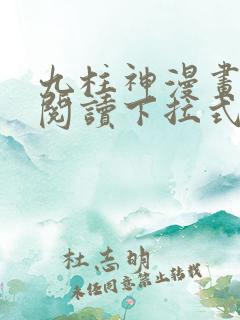 九柱神漫畫
閱讀下拉式
杜志明
未經同意禁止轉載